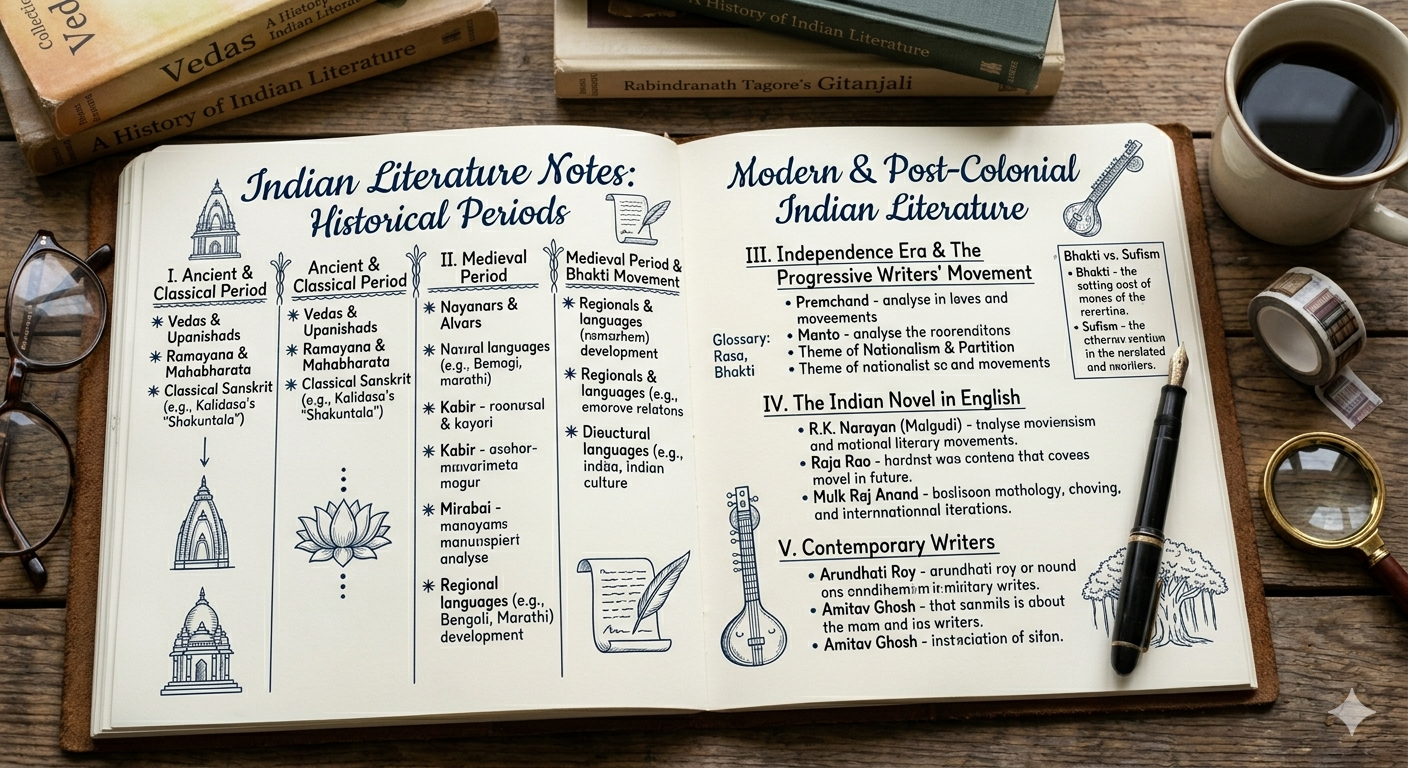 Collection
Vedas
A History of
Indian Literature
Vedas
A History of Indian Literature
A History of Indian Literature
Rabindranath Tagore's Gitanjali
Indian Literature Notes:
Historical Periods
I. Ancient &
Classical Period
Vedas &
Upanishads
Ramayana &
Mahabharata
Classical Sanskrit
(e.g., Kalidasa's
"Shakuntala")
Ancient &
Classical Period
Vedas &
Upanishads
Ramayana &
Mahabharata
Classical Sanskrit
(e.g., Kalidasa's
"Shakuntala")
II. Medieval
Period
Nayanars &
Alvars
languages
(e.g., Bemagi,
marathi)
Kabir - roonusal
& kayori
Kabir - asohor-
mogur
Mirabai -
manoyams
analyse
Regional
languages (e.g.,
Bengali, Marathi)
development
Medieval Period &
Bhakti Movement
Regionals &
languages
development
Regionals &
languages (e.g.,
emorove relatons
Dieuctural
languages (e.g.,
indäa, indian
culture
Modern & Post-Colonial
Indian Literature
III. Independence Era & The
Progressive Writers' Movement
• Premchand - analyse in loves and
moveements
• Manto - analyse the
• Theme of Nationalism & Partition
• Theme of nationalist sc and movements
Glossary:
Rasa,
Bhakti
Bhakti vs. Sufism
• Bhakti - the
sotting oost of
mones of the
rerertina.
• Sufism - the
in the
and
IV. The Indian Novel in English
• R.K. Narayan (Malgudi) - tnalyse
and mational literary movements.
• Raja Rao - hardnst was contena that coveas
movel in future.
• Mulk Raj Anand - boslisoon mothology, choving,
and internnationnal iterations.
V. Contemporary Writers
• Arundhati Roy - arundhati roy or nound
ons writes.
• Amitav Ghosh - that sanmils is about
the mam and ias writers.
• Amitav Ghosh - of sifan.